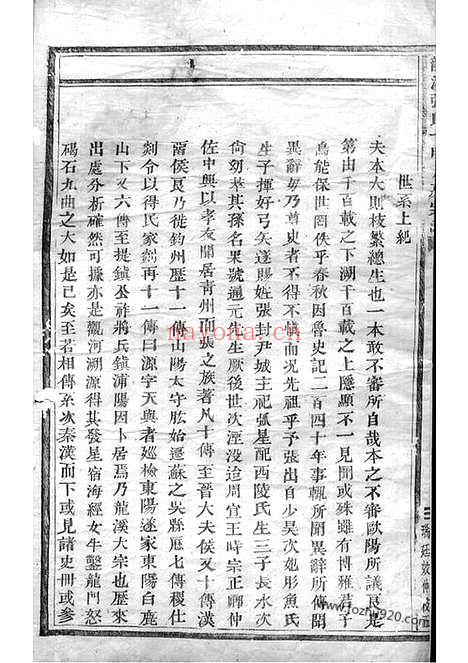 世系上紀
夫本大則枝繁總生也一本敢不審所自哉本之不審歐陽所議良是
第由千百載之下溯千百載之上隱顯不一見聞或殊雖有博雅君子
烏能保世罔佚乎春秋因魯史記二百四十年事輒所聞異辭所傳
異辭毋乃尊史者不得不慎而况先祖乎予張出自少昊次妣彤魚氏
生子揮好弓矢遂賜姓張封尹城主祀弧星配西陵氏生三子長水次
尙幼萃其孫名果號通元先生厥後世次湮没迨周宣王時宗正卿仲
佐中興以孝友聞居青州而張之族著凡十傳至晉大夫侯又十傳漢
畱侯良乃徙鈞州歷十一傳山陽太守肱始遷蘇之吳縣厯七傳稷仕
剡令以得氏家剡再十一傳曰源字天與者巡檢東陽遂家東陽白鹿
山下又六傳至提鎮公祚將兵鎮浦陽因卜居焉乃龍溪大宗也歷來
出處分析確然可據亦是觀河溯源得其發星宿海經女牛鑿龍門怒
碣石九曲之大如是已矣至若相傳系次秦漢而下或見諸史册或參
naikona.com
foxhy920.com